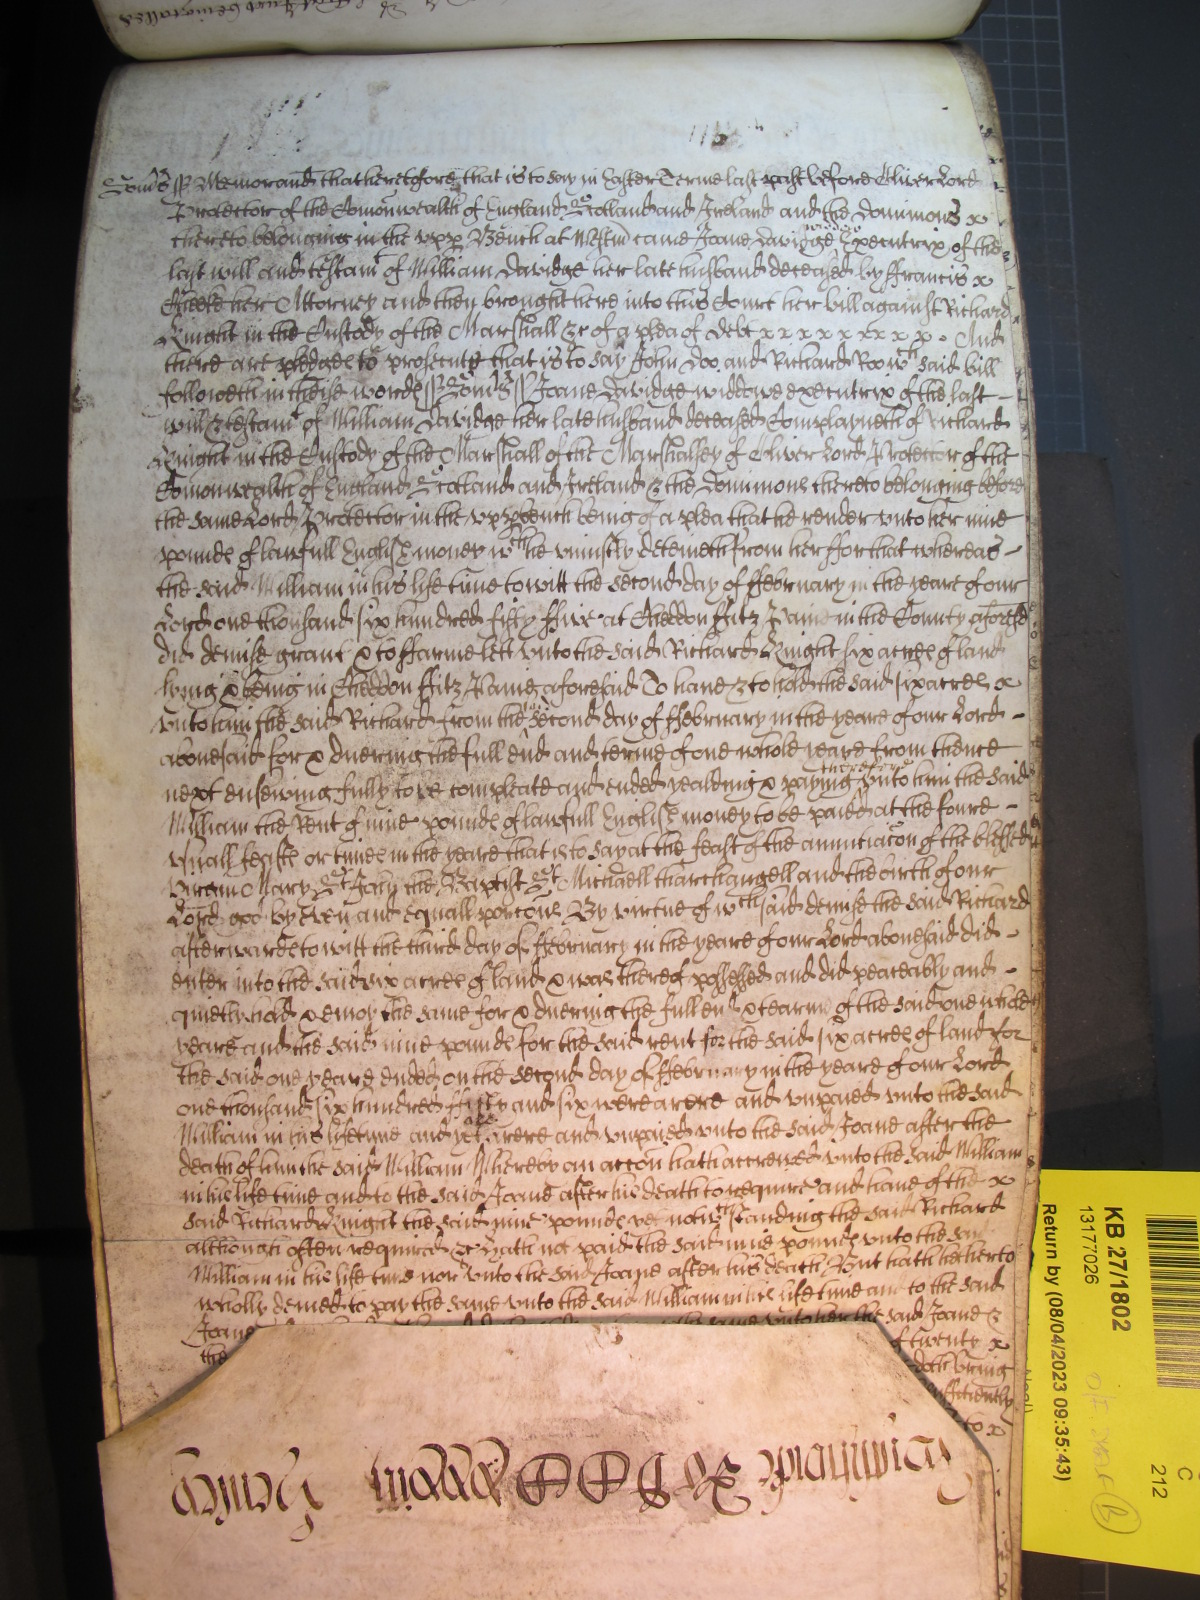 Som̃s ss Memorand that heretofore that is to say in Easter Terme last past before Oliver Lord
Protector of the Comonwealth of England Scotland and Ireland and the Dominions x
thereto belonging in the upp Bench at Westm̃ came Joane Davidge widdow Executrix of the
last will and testamt of William Davidge her late husband deceased by ffrancis x
Cheeke her Attorney and then brought here into this Court her bill against Richard
Knight in the Custody of the Marshall &c of a plea of debt x x x x x x x x x . And
there are pledges to prosecute that is to say John Doo and Richard Roo wch said bill
followeth in theise words ss Som̃s ss Joane Davidge widdowe executrix of the last -
will & testamt of William Davidge her late husband deceased Complayneth of Richard
Knight in the Custody of the Marshall of the Marshalsey of Oliver Lord Protector of the
Comonwealth of England Scotland and Ireland & the Dominions thereto belonging before
the same Lord Protector in the upp bench being of a plea that he render unto her nine
pounds of lawfull English money wch he uniustly deteineth from her ffor that whereas -
the said William in his life time to witt the second day of ffebruary in the yeare of our
Lord one thousand six hundred fifty ffive at Cheddon ffitz Paine in the County aforesd
did demise grant & to ffarme lett unto the said Richard Knight six acres of land
lying & being in Cheddon ffitz Paine aforesaid To have & to hold the said six acres x
unto him the said Richard from the said second day of ffebruary in the yeare of our Lord -
abovesaid for & duering the full end and terme of one whole yeare from thence
next ensewing fully to be compleate and ended yealding & paying therefore unto him the said
William the Rent of nine pounds of lawfull English money to be paied at the foure -
usuall feasts or times in the yeare that is to say at the feast of the annuntiacon of the blessed
Virgin Mary St John the Baptist St Michaell tharchangell and the birth of our
Lord god by even and equall porcons By virtue of wch said demise the said Richard
afterwards to witt the third day of ffebruary in the yeare of our Lord abovesaid did -
enter into the said six acres of land & was thereof possessed and did peaceably and -
quietly hold & enioy the same for & duering the full end & tearme of the said one whole
yeare and the said nine pounds for the said rent for the said six acres of land for
the said one yeare ended on the second day of ffebruary in the yeare of our Lord
one thousand six hundred fifty and six were arere and unpaied unto the said
William in his life time and yet are arere and unpaied unto the said Joane after the
death of him the said William Whereby an accon hath accrewed unto the said William
in his life time and to the said Joane after his death to require and have of the x
said Richard Knight the said nine pounds yet notwthstanding the said Richard
although often required &c hath not paid the said nine pounds unto the said
William in his life time nor unto the said Joane after his death But hath hitherto
wholly denied to pay the same unto the said William in his life time and to the said
Joane the same unto her the said Joane &
the of twenty x
doth bring
sufficiently
to x
KB 27/1802
13177026
Return by (08/04/2023 09:35:43)
C
212